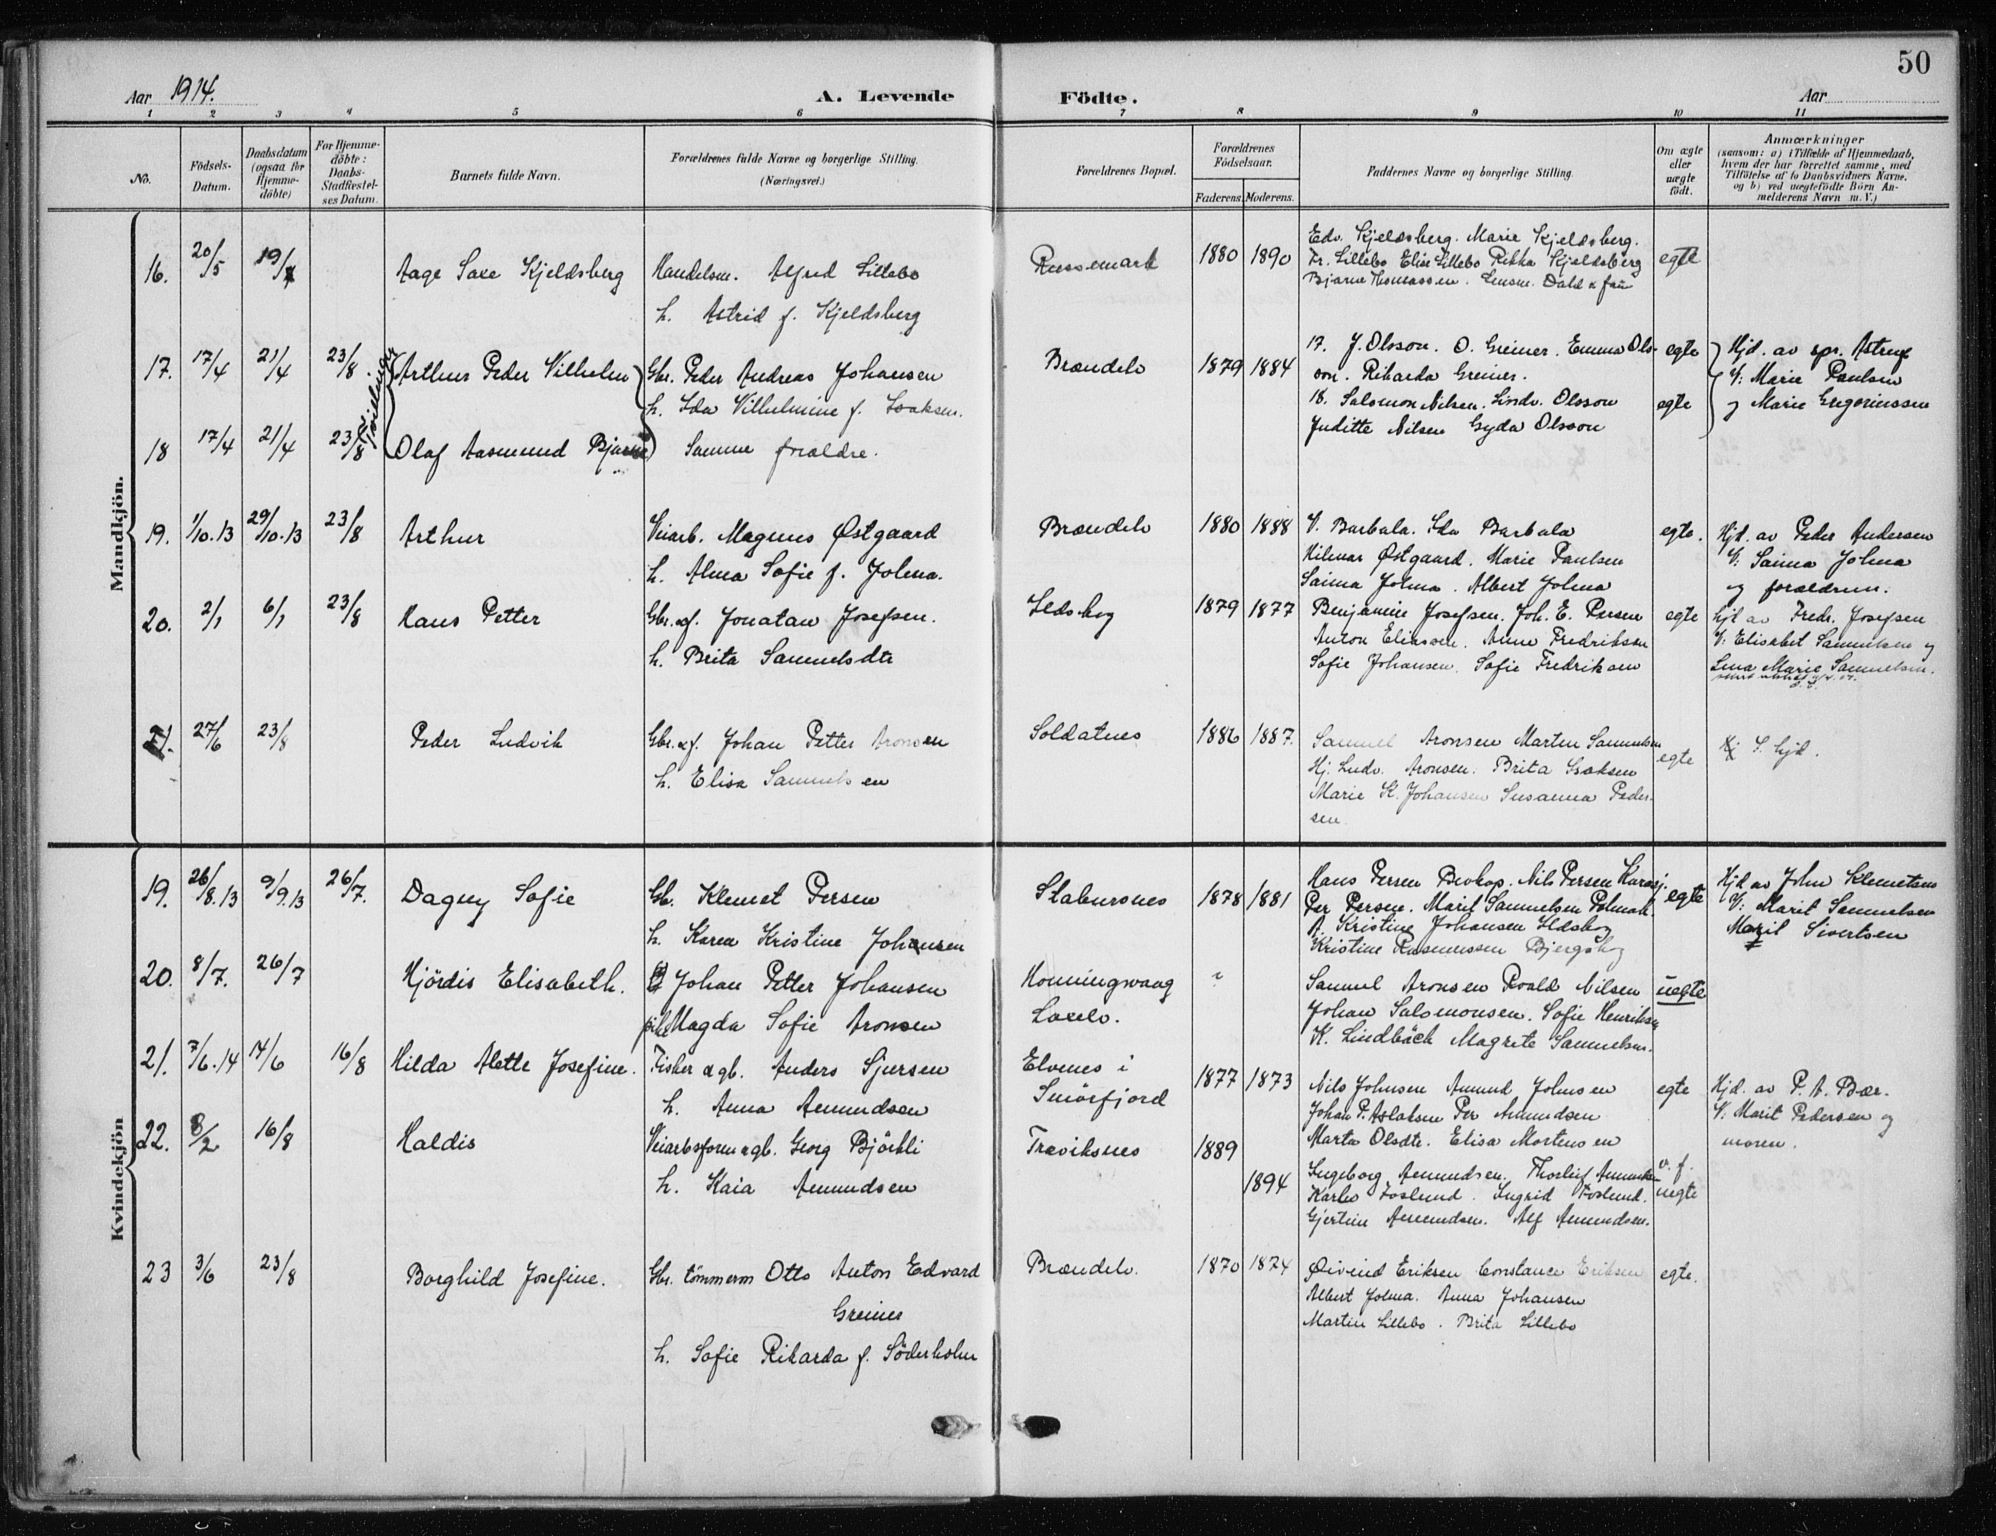 50
Aar 1914.
A. Levende Födte.
Aar
1 2 3 4 5 6 7 8 9 10 11
No.
Födsels-Datum.
Daabsdatum (ogsaa for Hjemmedöbte)
For Hjemmedöbte: Daabs-Stadfæstelses Datum.
Barnets fulde Navn.
Forældrenes fulde Navne og borgerlige Stilling.
(Næringsvei.)
Forældrenes Bopæl.
Forældrenes Födselsaar.
Faderens. Moderens.
Faddernes Navne og borgerlige Stilling.
Om ægte eller uægte födt.
Anmærkninger
(saasom: a) i Tilfælde af Hjemmedaab, hvem der har forrettet samme, med Tilföielse af to Daabsvidners Navne, og b) ved uægtefödte Börn Anmelderens Navn m. V.)
Mandkjön.
16. 20/5 19/7 Aage Saxe Kjeldsberg
Handelsm. Alfred Lillebo
h. Astrid f. Kjeldsberg
Russemark 1880 1890
Edv. Kjeldsberg. Marie Kjeldsberg.
Fr. Lillebo Elise Lillebo Rikka Kjeldsberg
Bjarne Thomassen. Lensm. Dahl & fru
egte
17. 17/4 21/4 23/8 Tvillinger Arthur Peder Vilhelm
Gbr. Peder Andreas Johansen
h. Ida Vilhelmine f. Isaksen.
Brændelv 1879 1884
17. J. Olsson. O. Greiner. Emma Ols-
son. Rikarda Greiner.
egte
Hjd. av spr. Astrup
V: Marie Paulsen
og Marie Gregoriussen
18 17/4 21/4 23/8 Olaf Aasmund Bjarne
Samme forældre.
18. Salomon Nilsen. Lindv. Olsson
Juditte Nilsen Gyda Olsson
egte
19. 1/10.13 29/10.13 23/8 Arthur
Veiarb. Magnus Østgaard
h. Alma Sofie f. Jolma.
Brændelv 1880 1888
V. Barbala. Ida Barbala
Hilmar Østgaard. Marie Paulsen
Saima Jolma. Albert Jolma
egte.
Hjd. av Peder Andersen
V: Saima Jolma
og forældrene.
20. 2/1 6/1 23/8 Hans Petter
Gbr. & f. Jonatan Josefsen.
h. Brita Samuelsdtr
Ildskog 1879 1877
Benjamine Josefsen. Joh. E. Persen
Anton Eliasen. Anne Fredriksen
Sofie Johansen. Sofie Fredriksen
egte
hjd av Fredr. Josefsen
V: Elisabet Samuelsen og
Lina Marie Samuelsen.
21. 27/6 23/8 Peder Ludvik
Gbr. & f. Johan Petter Aronsen
h. Elisa Samuelsen
Soldatnes 1886 1887.
Samuel Aronsen Martin Samuelsen
Hj. Ludv. Aronsen. Brita Isaksen
Marie K. Johansen Susanna Peder-
sen.
egte
hjd.
Kvindekjön
19. 26/8.13 9/9.13 26/7. Dagny Sofie
Gb. Klemet Persen
h. Karen Kristine Johansen
Stabursnes 1878 1881
Hans Persen Bevkop. Nils Persen Karasj.
Per Persen. Marit Samuelsen Polmak.
A. Kristine Johansen Ildskog
Kristine Rasmussen Bjergskog
egte
Hjd av John Klemetsen
V: Marit Samuelsen
Marit Sivertsen
20. 8/7. 26/7 Hjördis Elisabeth.
Johan Petter Johansen
pike Magda Sofie Aronsen
Honningsvaag
Laxelv.
Samuel Aronsen Roald Nilsen
Johan Salomonsen. Sofie Henriksen
K. Lindbäck Magrete Samuelsen.
uegte
21. 7/6.14 14/6 16/8 Hilda Alette Josefine.
Fisker & gb. Anders Sjursen
h. Anna Amundsen
Elvenes i
Smörfjord
1877 1873
Nils Johnsen Amund Johnsen
Johan P. Aslaksen Per Amundsen
Marta Olsdtr. Elisa Mortensen
egte
Hjd. av P. A. Bær.
V. Marit Pedersen og
moren.
22. 8/2 16/8 Haldis
Veiarbsform & gb. Georg Björkli
h. Kaia Amundsen
Træviksnes 1889
1894
Ingeborg Amundsen. Thorleif Amundsen
Karlo Foslund. Ingrid Foslund.
Gjertine Amundsen. Alf Amundsen.
v. f. uegte
23 3/6 23/8 Borghild Josefine.
Gbr. tömmerm Otto Anton Edvard
Greiner
h. Sofie Rikarda f. Söderholm
Brændelv. 1870 1874
Øivind Eriksen Constance Eriksen
Albert Jolma. Anna Johansen
Martin Lillebo. Brita Lillebo
egte.